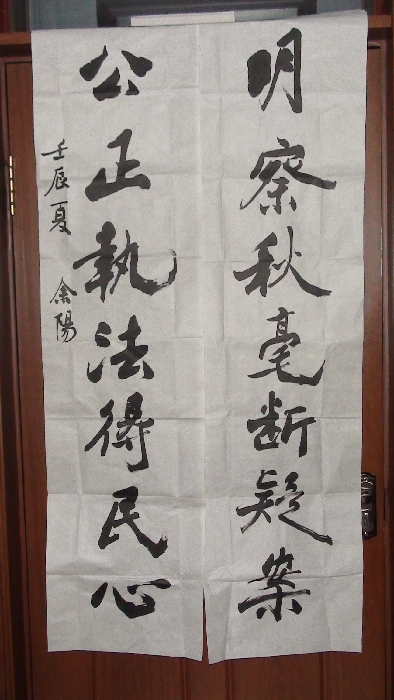 明察秋毫断疑案
公正執法得民心
壬辰夏 余陽